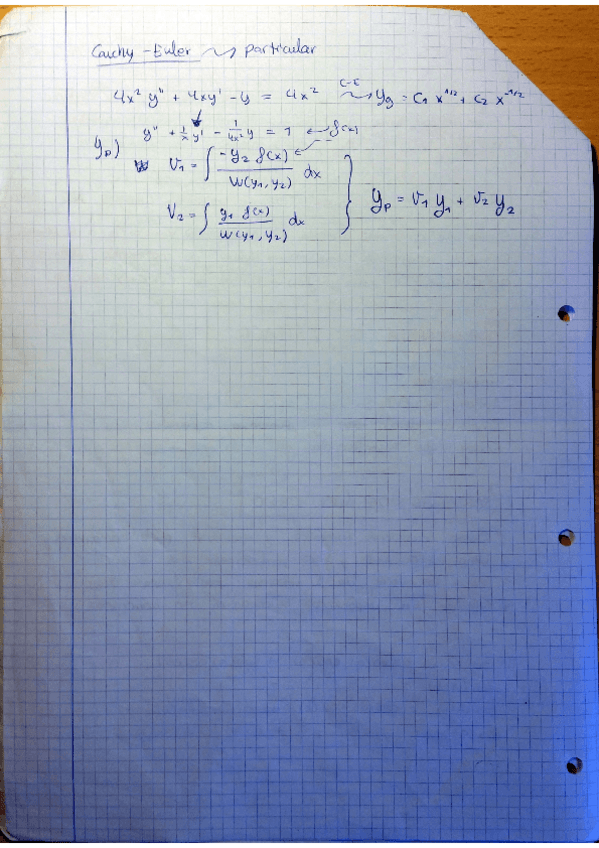 Cauchy - Euler ⤳ particular
4x² y'' + 4xy' - y = 4x² ⤳ C-E y_g = C₁ x^{1/2} + C₂ x^{-1/2}
y'' + 1/x y' - 1/4x² y = 1 ← f(x)
y_p) V₁ = ∫ -y₂ f(x) / W(y₁, y₂) dx
V₂ = ∫ y₁ f(x) / W(y₁, y₂) dx } y_p = V₁ y₁ + V₂ y₂